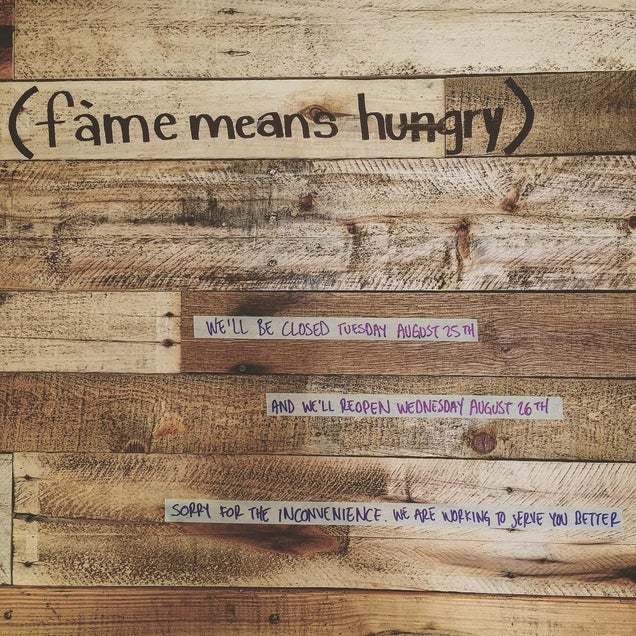 (fàme means hungry)
WE'LL BE CLOSED TUESDAY AUGUST 25TH
AND WE'LL REOPEN WEDNESDAY AUGUST 26TH
SORRY FOR THE INCONVENIENCE. WE ARE WORKING TO SERVE YOU BETTER